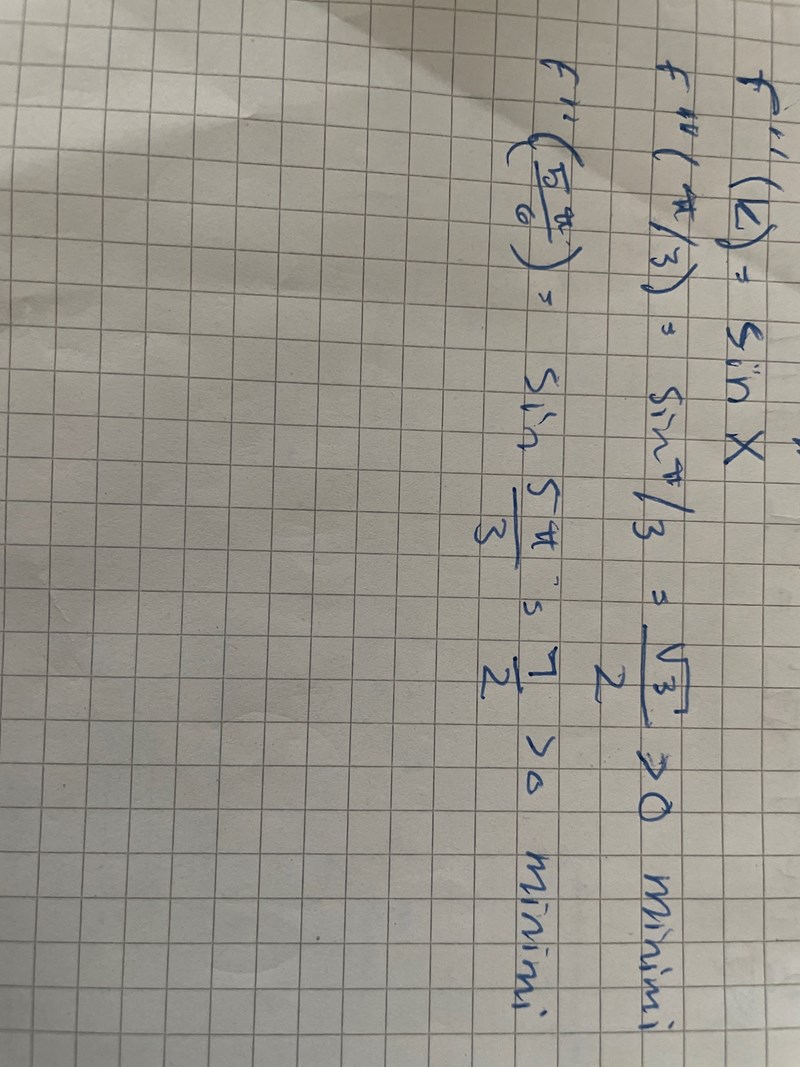 F''(x) = sin x
F''(π/3) = sin π/3 = √3/2 >0 minimi
F''(5π/6) = sin 5π/3 = 1/2 >0 minimi